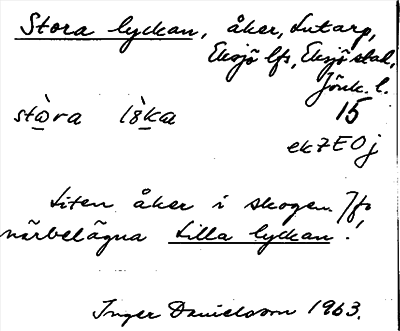 Stora lyckan, åker, Lutarp,
Eksjö lfs, Eksjö stad,
Jönk. l.
stòra löka 15
ek7E0j
Liten åker i skogen. Jfr
närbelägna Lilla lyckan!
Inger Danielsson 1963.